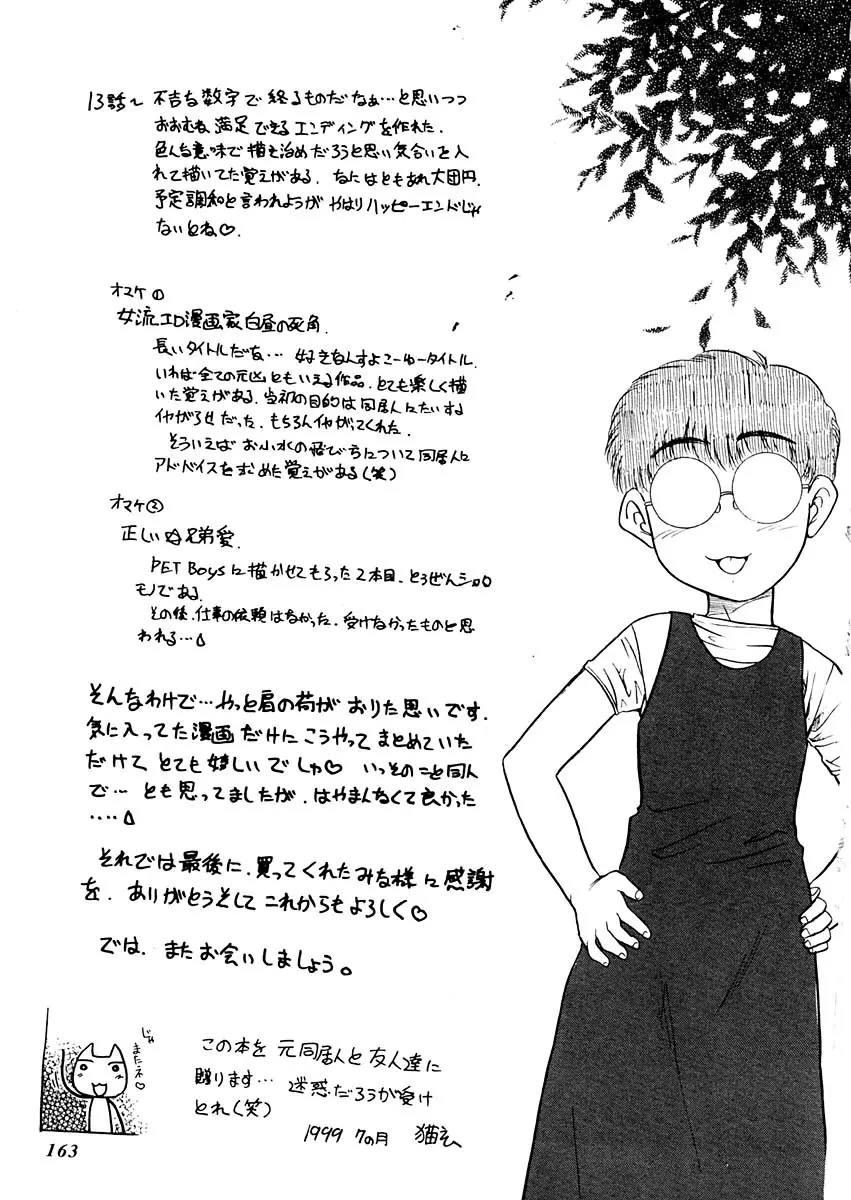 13話~ 不吉な数字で終るものだなぁ…と思いつつ
おおむね満足できるエンディングを作れた.
色んな意味で描き治めだろうと思い気合いを入
れて描いてた覚えがある. なにはともあれ大団円.
予定調和と言われようが やはりハッピーエンドじゃ
ないとね♡.
オマケ①
女流エロ漫画家白昼の死角.
長いタイトルだな… 好きなんすよこーゆータイトル.
いわば全ての元凶ともいえる作品. とても楽しく描
いた覚えがある. 当初の目的は同居人にたいする
イヤがらせだった. もちろんイヤがってくれた.
そういえば お小水の飛び方について同居人に
アドバイスを求めた覚えがある(笑)
オマケ②
正しい兄弟愛.
PET Boysに描かせてもらった2本目. とうぜんショタ
モノである.
その後. 仕事の依頼はなかった. 受けなかったものと思
われる…
そんなわけで…やっと肩の荷が おりた思いです.
気に入ってた漫画だけに こうやって まとめていた
だけて とても嬉しいでしゅ♡ いっそのこと同人
で… とも思ってましたが. はやまんなくて良かった
‥‥
それでは最後に. 買ってくれたみな様に感謝
を. ありがとうそして これからもよろしく♡
では. またお会いしましょう。
じゃ
またネ♡
この本を 元同居人と友人達に
贈ります… 迷惑だろうが受け
とれ(笑)
1999 7の月 猫玄
163